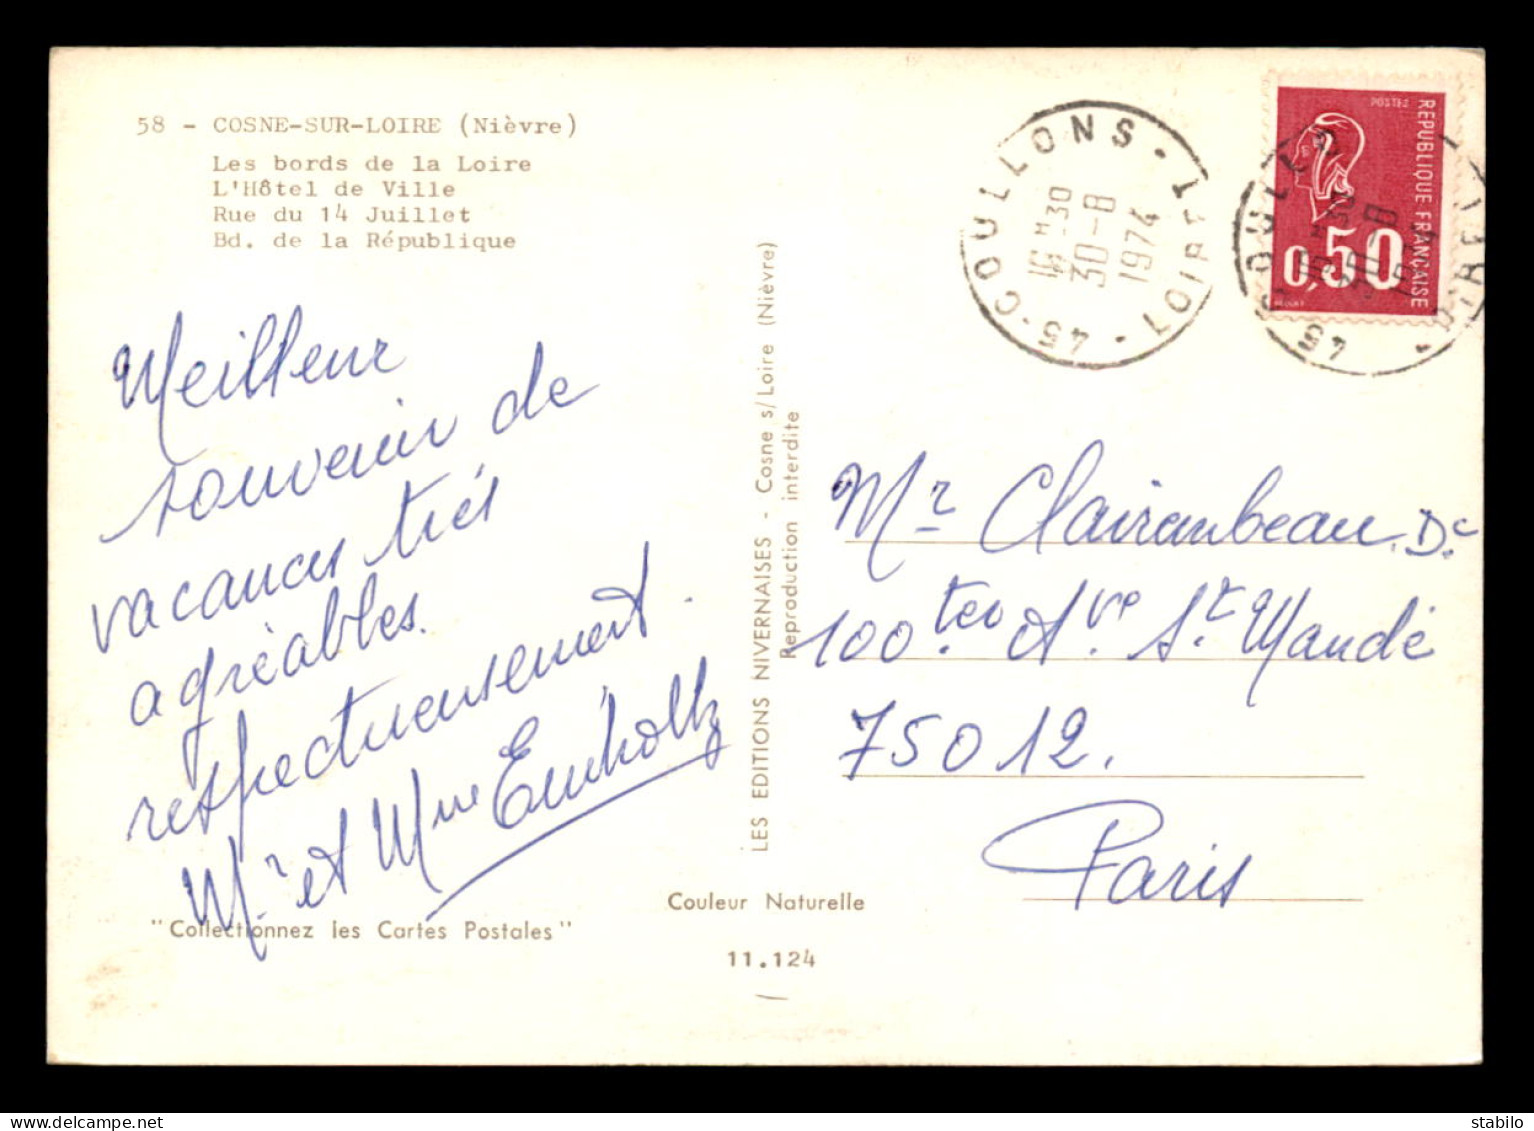 58 - COSNE-SUR-LOIRE (Nièvre)
Les bords de la Loire
L'Hôtel de Ville
Rue du 14 Juillet
Bd. de la République
Meilleur
souvenir de
vacances très
agréables.
respectueusement.
Mr et Mme Emholtz
"Collectionnez les Cartes Postales"
LES EDITIONS NIVERNAISES - Cosne s/Loire (Nièvre)
Reproduction interdite
Couleur Naturelle
11.124
45-COULLONS-LOIRET
16H30
30-8
1974
POSTES
REPUBLIQUE FRANÇAISE
0,50
45 COULLO
30-8
Mr Clairanbeau. Dc
100ter Ave St Mandé
75012.
Paris
stabilo
delcampe.net